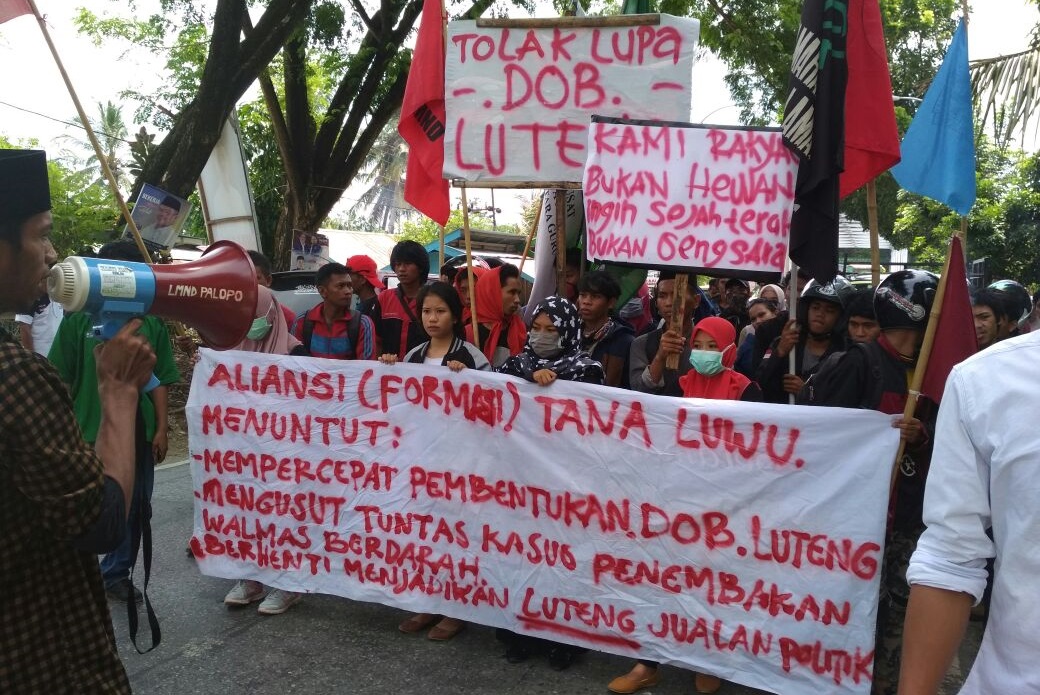 TOLAK LUPA
-. DOB. -
LUTE
KAMI RAKYA
BUKAN HEWAN
ingin Sejahterah
BUKAN Gengsara
LMND PALOPO
ALIANSI (FORMASI) TANA LUWU.
MENUNTUT:
-MEMPERCEPAT PEMBENTUKAN.DOB.LUTENG
-MENGUSUT TUNTAS KASUS PENEMBAKAN
WALMAS BERDARAH.
BERHENTI MENJADIKAN LUTENG JUALAN POLITIK